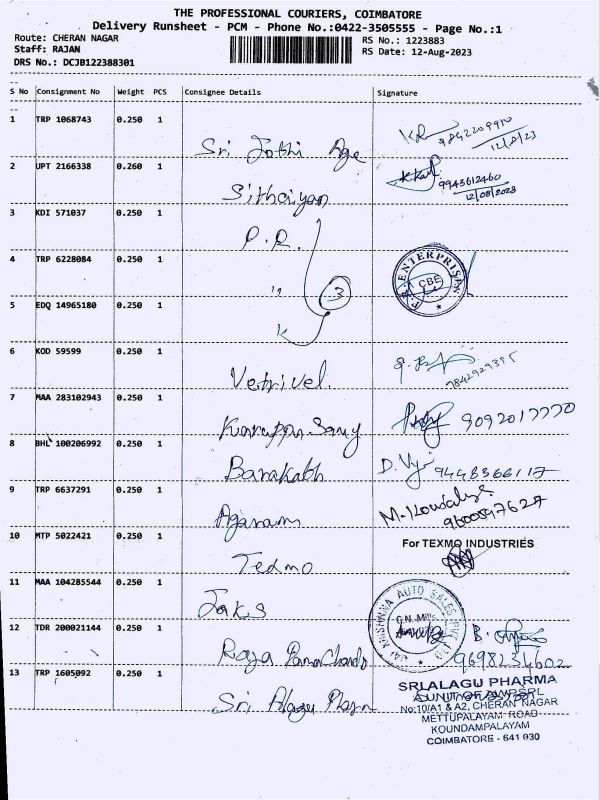 THE PROFESSIONAL COURIERS, COIMBATORE
Delivery Runsheet - PCM - Phone No.:0422-3505555 - Page No.:1
Route: CHERAN NAGAR RS No.: 1223883
Staff: RAJAN RS Date: 12-Aug-2023
DRS No.: DCJB122388301
S No Consignment No Weight PCS Consignee Details Signature
1 TRP 1068743 0.250 1 Sri Jothi Age 9842209910
12/8/23
2 UPT 2166338 0.260 1 Sithaiyan 9943612460
12/08/2023
3 KDI 571037 0.250 1 P.R.
4 TRP 6228084 0.250 1 " 3 ENTERPRISES CBE
5 EDQ 14965180 0.250 1
6 KOD 59599 0.250 1 Vetrivel. 9842929395
7 MAA 283102943 0.250 1 Karuppa Samy 9092017770
8 BHL 100206992 0.250 1 Barakath D. Vji 9448366117
9 TRP 6637291 0.250 1 Agaram M. Kousalya
9600597627
10 MTP 5022421 0.250 1 Texmo For TEXMO INDUSTRIES
11 MAA 104285544 0.250 1 Jaks JAI KRISHNAA AUTO SALES PVT LTD G.N. Mills
12 TDR 200021144 0.250 1 Raja Ramachandr B.
9698234602
13 TRP 1605092 0.250 1 Sri Alagu Pharm SRI ALAGU PHARMA
A UNIT OF
No:10/A1 & A2, CHERAN NAGAR
METTUPALAYAM ROAD
KOUNDAMPALAYAM
COIMBATORE - 641 030